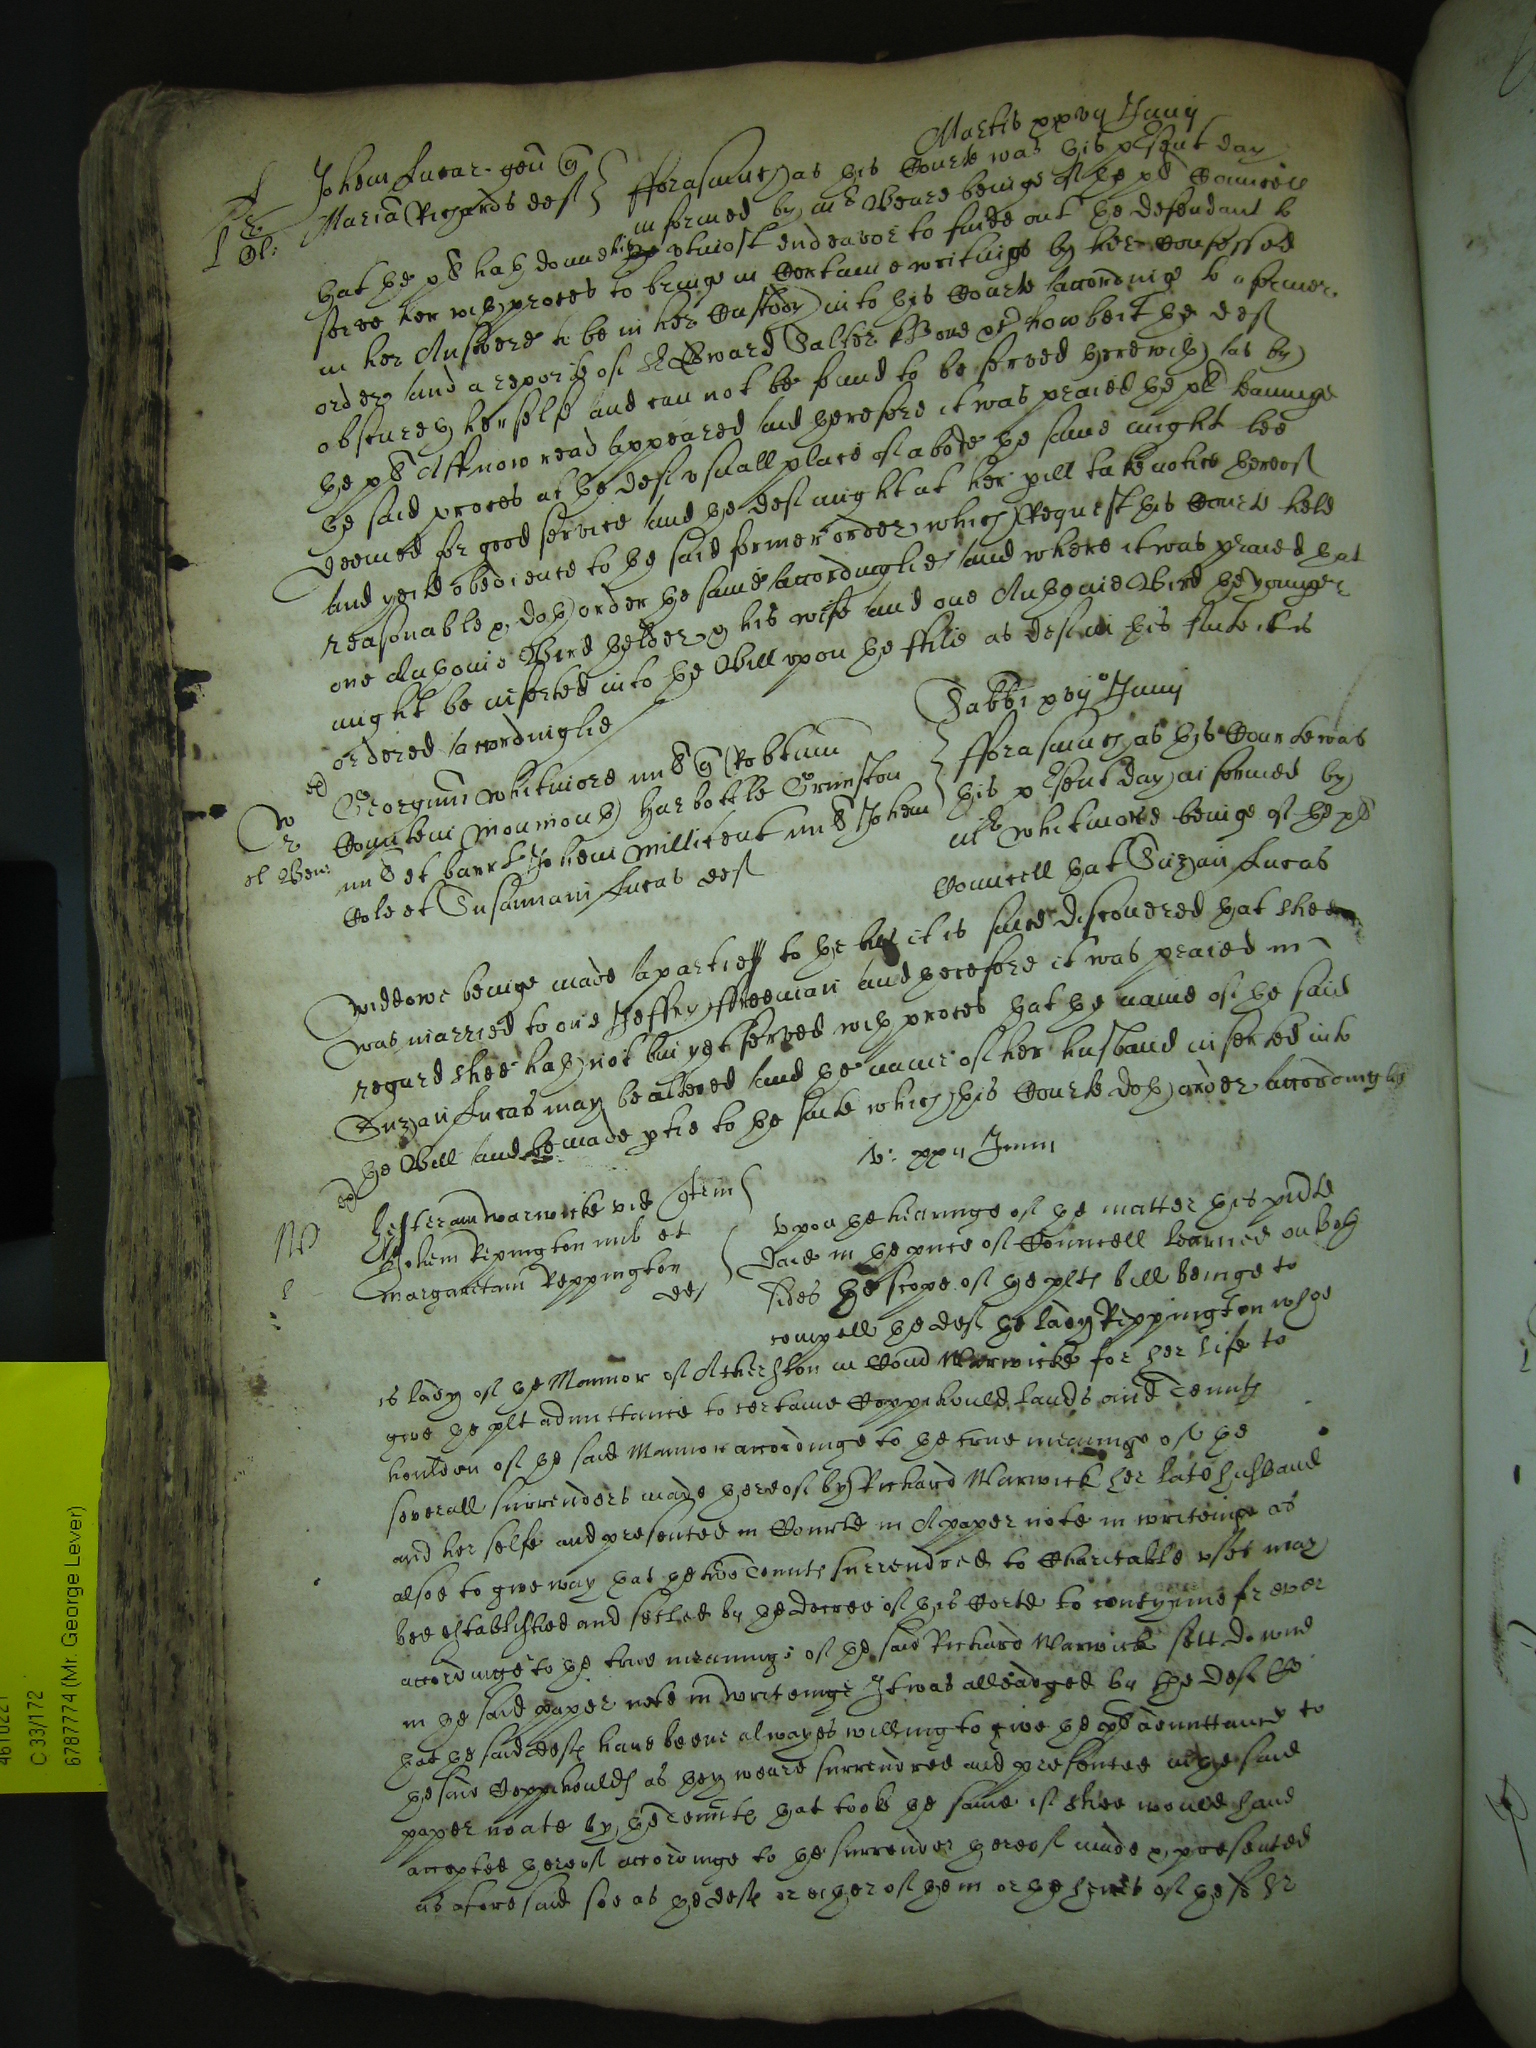 Martis xxvij Junij
Johem Lucar gen q
Maria Richards def } fforasmuch as this Courte was this p'sent day
informed by mr Weare beinge of the plt Councell
that the plt hath donne his utmost endeavor to finde out the defendant to
serve her with proces to bringe in Certaine writinge by her Confessed
in her Answere to be in her Custody into this Courte accordinge to a former
order and a reporte of Sr Edward Salter howbeit the def
obscureth her selfe and can not be found to be served therewith as by
the plt Aff now read appeared and therefore it was praied the plt leaveinge
the said proces at the def usuall place of abode the same might bee
deemed for good service and the def might at her perill take notice thereof
and yeild obedience to the said former order which Request this Courte held
reasonable & doth order the same accordinglie and where it was praied that
one Anthonie Bird thelder & his wife and one Anthonie Bird the younger
might be inserted into the Bill upon the ffile as def in this suite it is
ordered accordinglie
Sabbi xvij° Junij
Georgium Whitmore mil q Robtum
Comitem Monmouth Harbottle Grimston
mil et barrt Johem Millicent mil Johem
Cole et Susannam Lucas def
} fforasmuch as this Courte was
this p'sent day informed by
mr Whitmore beinge of the plt
Councell that Suzan Lucas
widdowe beinge made a partie to the bill it is since discovered that shee
was married to one Jeffry ffreeman and therefore it was praied in
regard shee hath not bin yet served with proces that the name of the said
Suzan Lucas may be altered and the name of her husband inserted into
the Bill and be made ptie to the suite which this Courte doth order accordingly
v: xxij Junii
Hesteram Warwicke vid
Johem Repington mil et
Margaretam Reppington
def
Upon the hearinge of the matter this pnte
daie in the pnce of Councell learned on both
sides the scope of the plts bill beinge to
compell the def the lady Rippington whoe
is lady of the Mannor of Atherston in Com Warwicke for her life to
give the plt admittance to certaine Coppihould lands and Tenmts
houlden of the said Mannor accordinge to the true meaninge of the
severall surrenders made thereof by Richard Warwick her late husband
and her selfe and presented in Courte in A paper note in writeinge as
alsoe to give way that the two Tenmts surrendred to Charitable uses may
bee established and setled by the decree of this Corte to contynue for ever
accordinge to the true meaninge of the said Richard Warwick sett downe
in the said paper note in writeinge It was alleadged by the def Co
that the said defts have beene alwayes willing to give the plt admittance to
the said Coppihoulds as they weare surrendred and presented in the said
paper noate by the Tenmts that tooke the same if shee would have
accepted thereof accordinge to the surrender thereof made & presented
as aforesaid soe as the defts or either of them or the heires of the sd Sr
C 33/172
6787774 (Mr. George Lever)